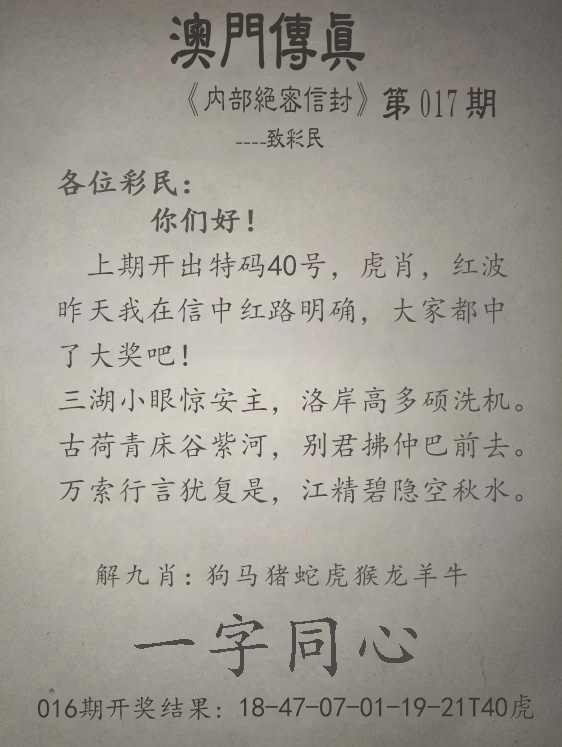 澳門傳真
《内部絕密信封》第017期
----致彩民
各位彩民：
你们好！
上期开出特码40号，虎肖，红波
昨天我在信中红路明确，大家都中
了大奖吧！
三湖小眼惊安主，洛岸高多硕洗机。
古荷青床谷紫河，别君拂仲巴前去。
万索行言犹复是，江精碧隐空秋水。
解九肖：狗马猪蛇虎猴龙羊牛
一字同心
016期开奖结果：18-47-07-01-19-21T40虎